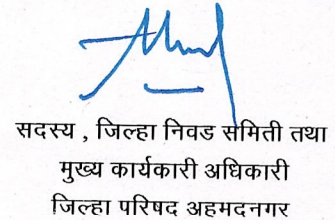 सदस्य , जिल्हा निवड समिती तथा
मुख्य कार्यकारी अधिकारी
जिल्हा परिषद अहमदनगर